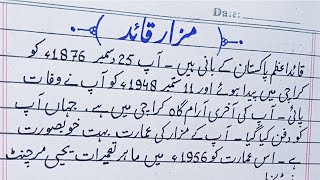 Date:
مزار قائد
قائداعظم پاکستان کے بانی ہیں۔ آپ 25 دسمبر 1876ء کو
کراچی میں پیدا ہوئے اور 11 ستمبر 1948ء کو آپ نے وفات
پائی۔ آپ کی آخری آرام گاہ کراچی میں ہے۔ جہاں آپ
کو دفن کیا گیا۔ آپ کے مزار کی عمارت بہت خوبصورت
ہے۔ اس عمارت کو 1956ء میں ماہر تعمیرات یحیٰی مرچنٹ